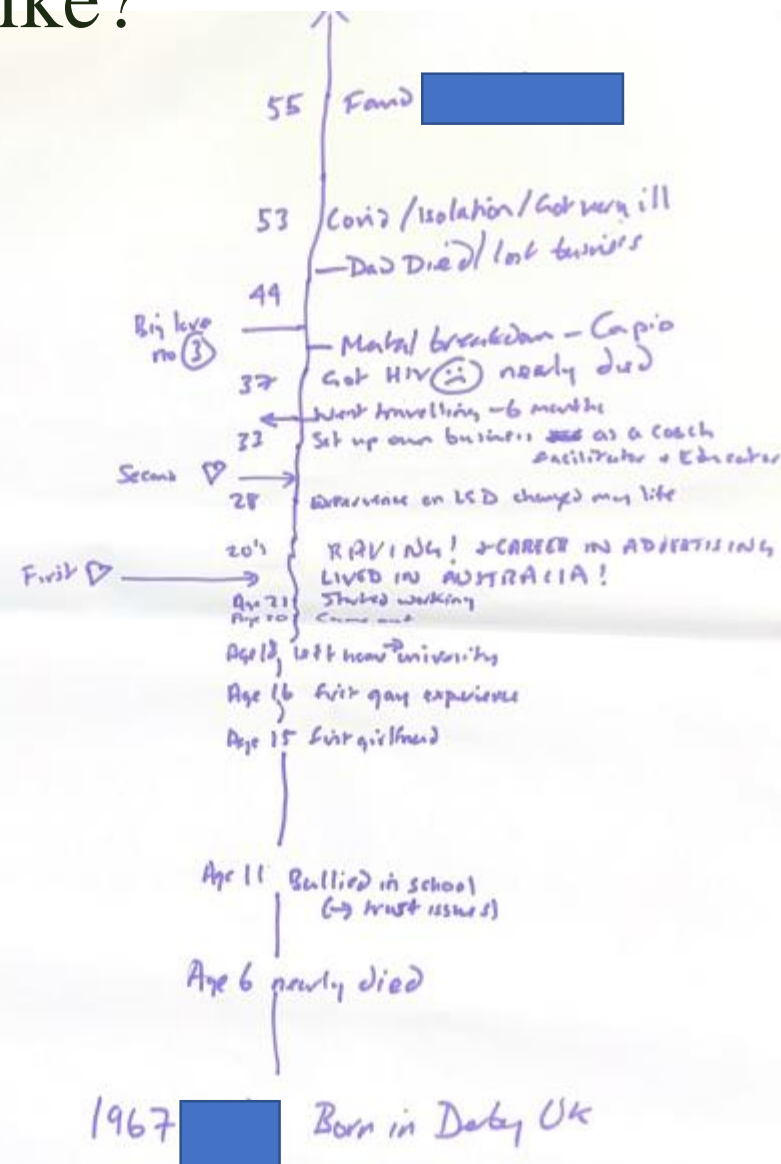 ike?
55 Found
53 Covid / Isolation / Got very ill
— Dad Died / lost business
44
Big love no 3
— Mental breakdown – Capio
37 Got HIV ☹ nearly died
Went travelling – 6 months
33 Set up own business as a coach
facilitator + Educator
Second ♡
28 Experience on LSD changed my life
20's RAVING! + CAREER IN ADVERTISING
First ♡ LIVED IN AUSTRALIA!
Age 21 Started working
Age 20 Came out
Age 18, Left home → university
Age 16 first gay experience
Age 15 first girlfriend
Age 11 Bullied in school
(→ trust issues)
Age 6 nearly died
1967 Born in Derby UK